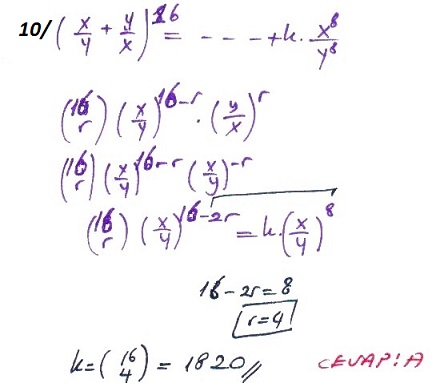 10/ (x/y + y/x)^16 = - - - + k. x^8/y^8
(16 r) (x/y)^16-r . (y/x)^r
(16 r) (x/y)^16-r (x/y)^-r
(16 r) (x/y)^16-2r = k.(x/y)^8
16-2r=8
r=4
k=(16 4) = 1820// CEVAP:A